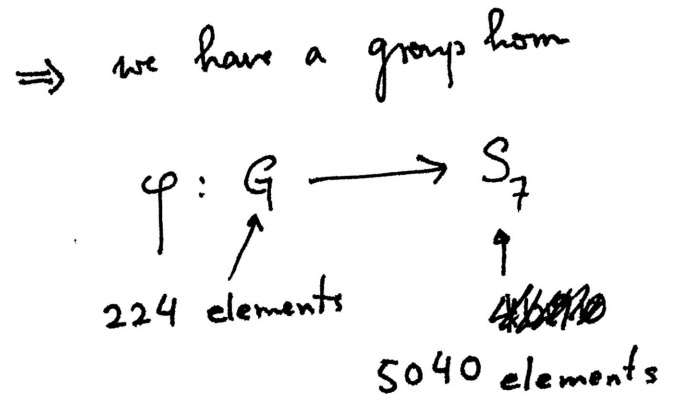 ⇒ we have a group hom
φ : G ⟶ S₇
224 elements
5040 elements